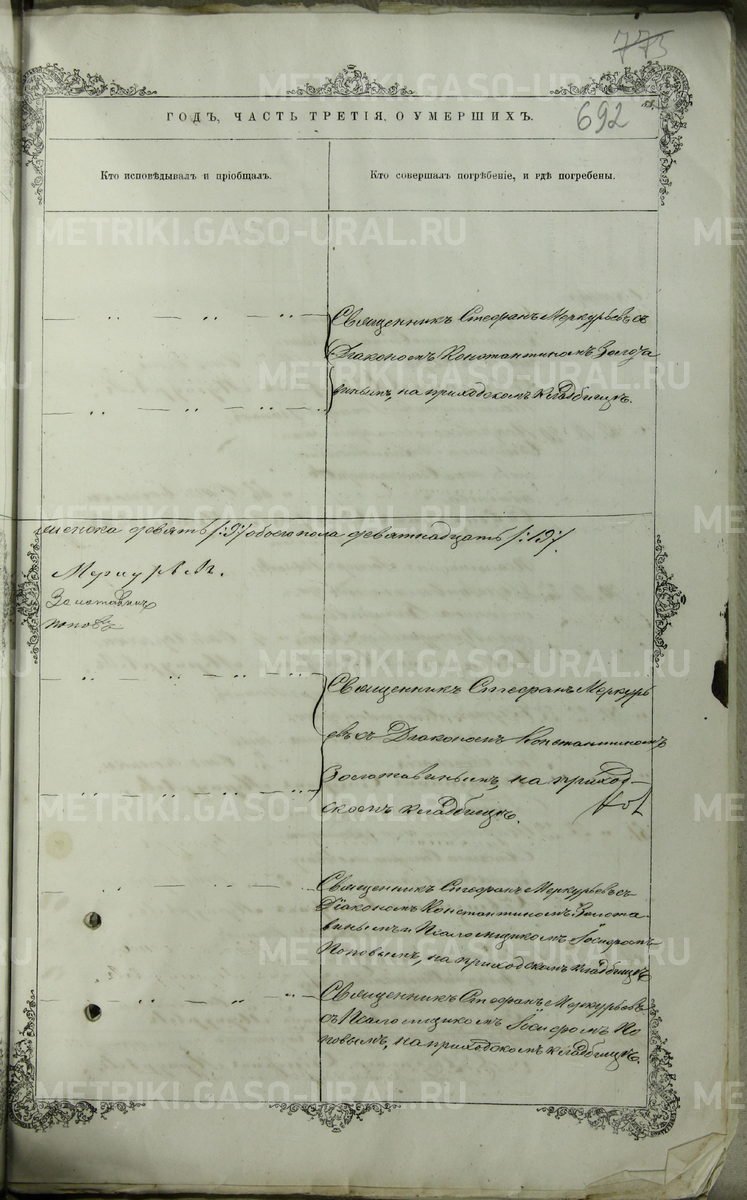 775
692
ГОДЪ, ЧАСТЬ ТРЕТІЯ, О УМЕРШИХЪ.
Кто исповѣдывалъ и пріобщалъ.
Кто совершалъ погребеніе, и гдѣ погребены.
Священникъ Стефанъ Меркурьевъ съ
Діакономъ Константиномъ Золота
винымъ, на приходскомъ кладбищѣ.
женска девять /:9:/ обоего пола девятнадцать /:19:/.
Меркурьевъ.
Золотавинъ
Поповъ
Священникъ Стефанъ Меркурь
евъ съ Діакономъ Константиномъ
Золотавинымъ, на приход-
скомъ кладбищѣ.
Священникъ Стефанъ Меркурьевъ съ
Діакономъ Константиномъ Золота
винымъ и Псаломщикомъ
Поповымъ, на приходскомъ кладбищѣ
Священникъ Стефанъ Меркурьевъ
съ Псаломщикомъ По
повымъ, на приходскомъ кладбищѣ.
METRIKI.GASO-URAL.RU